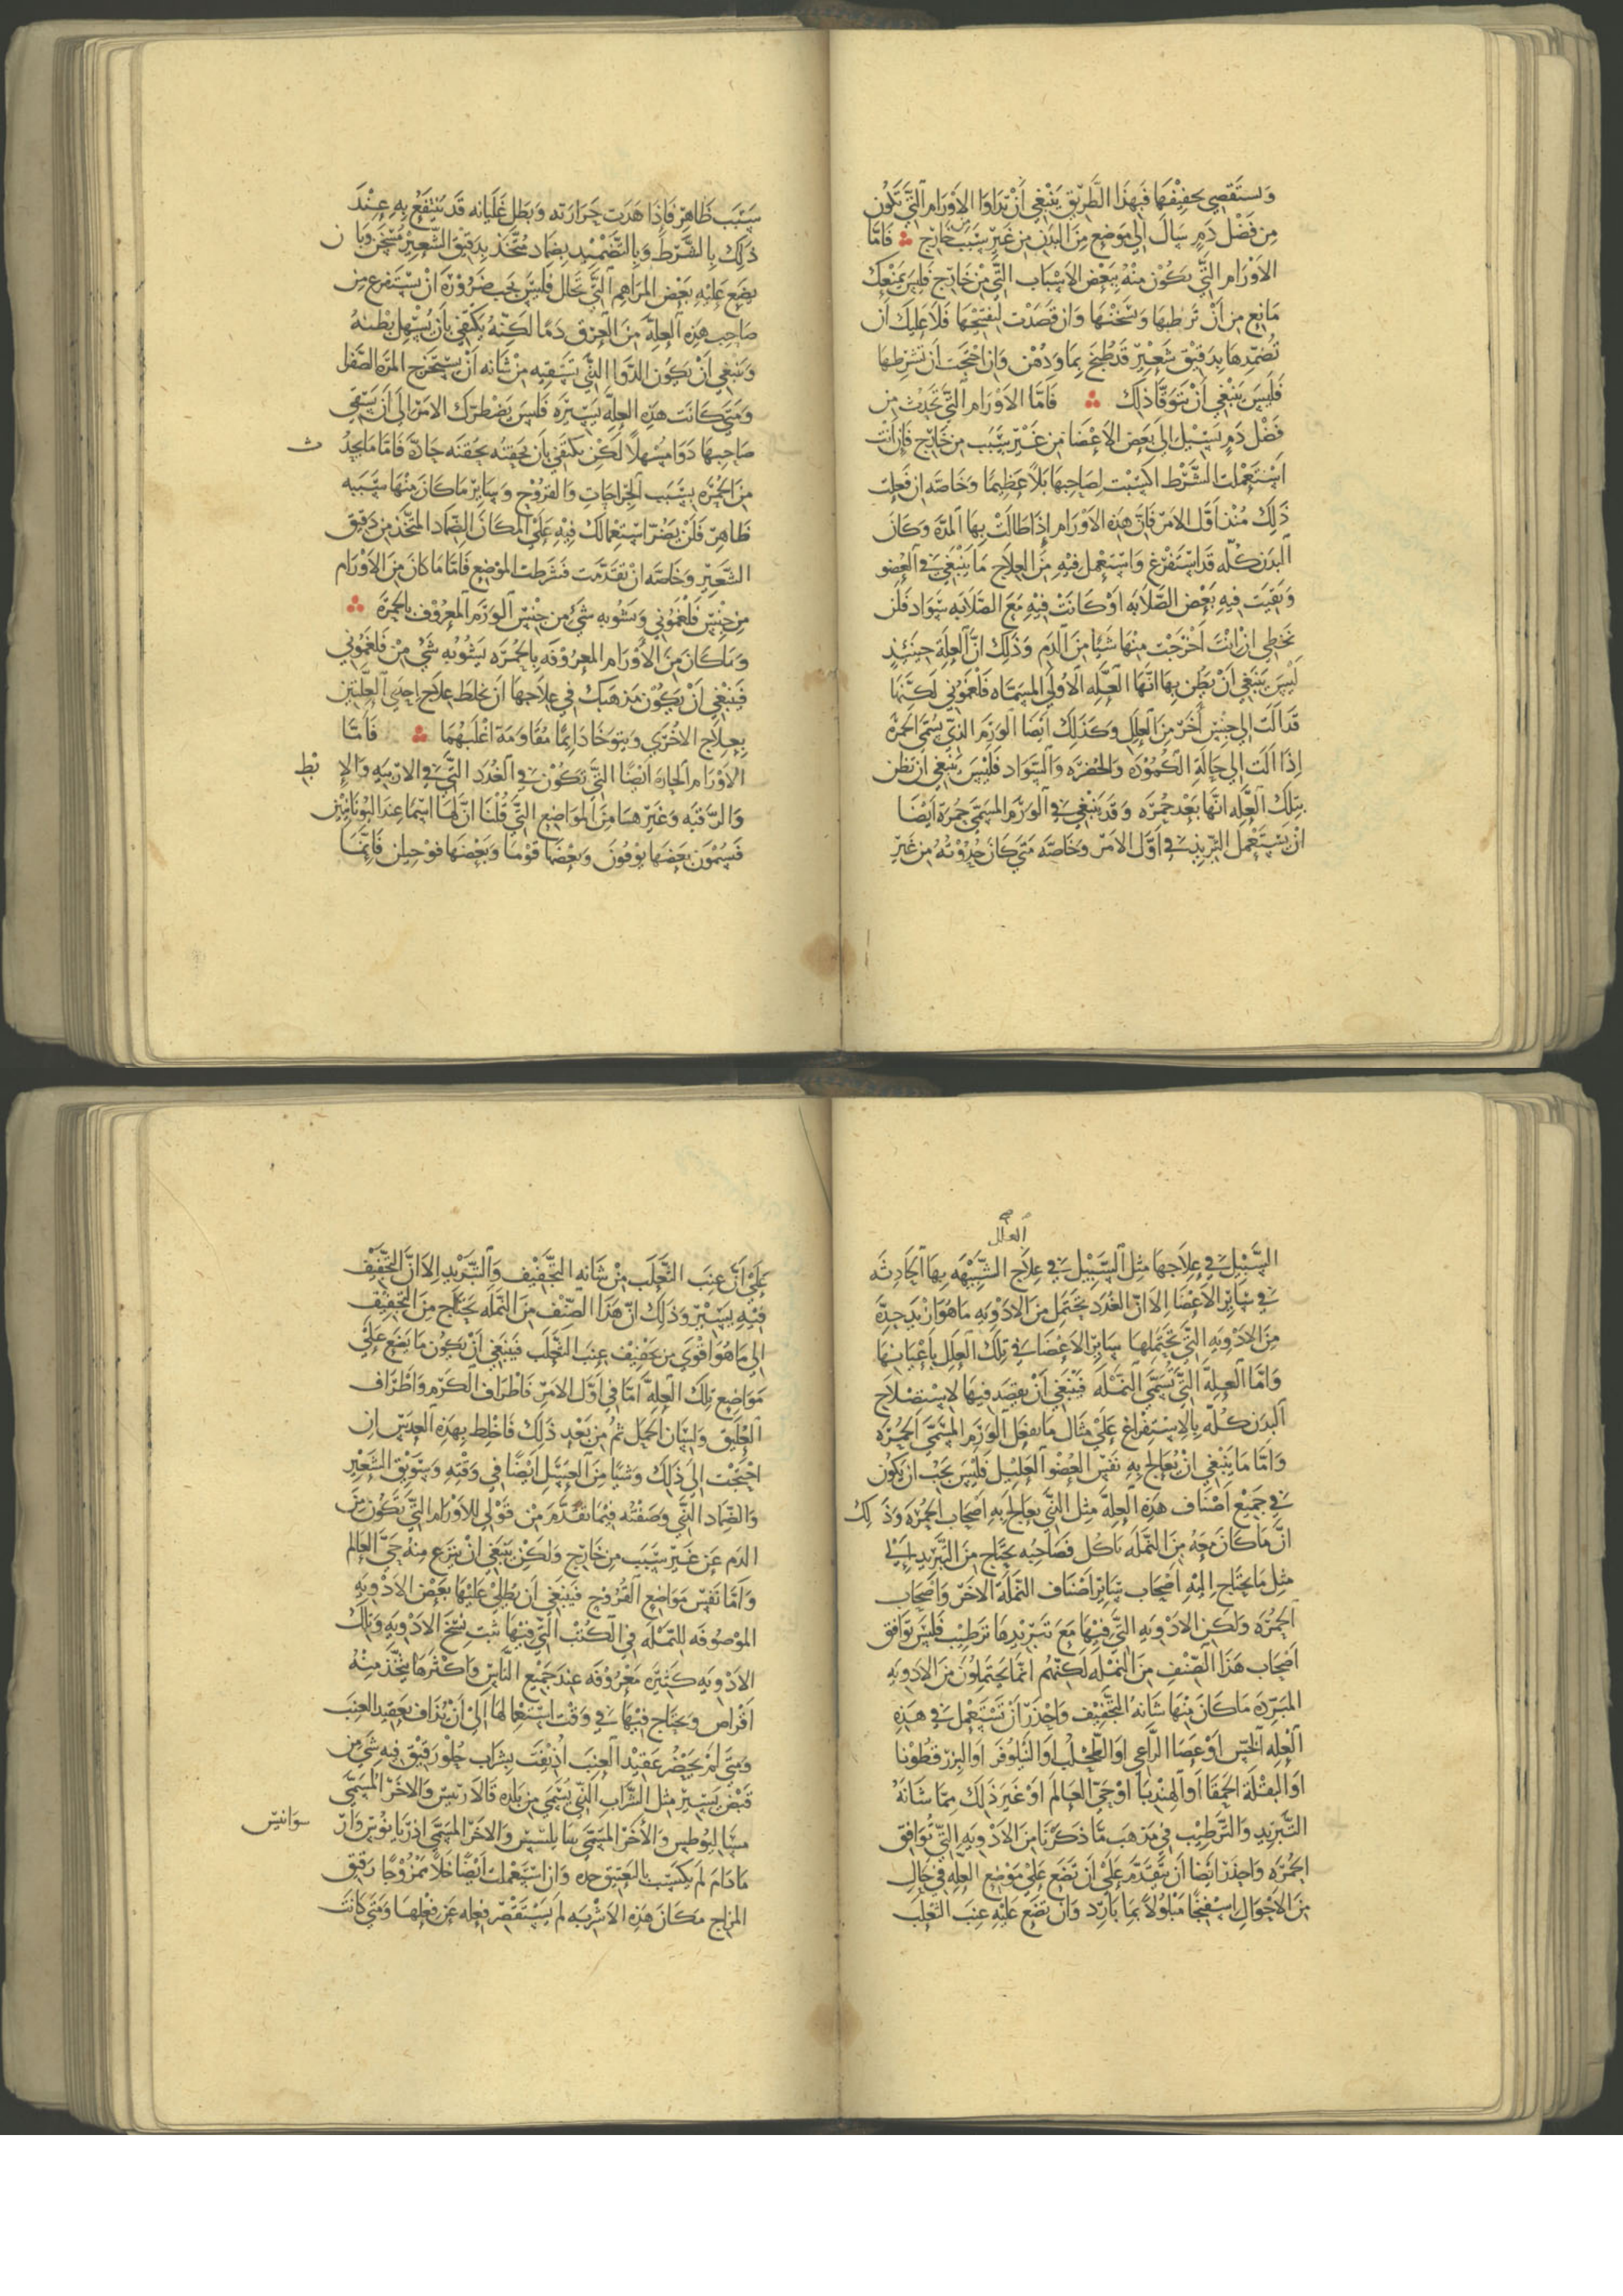 وَتستَقصِي تجفِيفَهَا فَبِهَذَا الطَّرِيقِ يَنْبَغِي أَنْ تُدَاوَا الاَوْرَام الَّتِي تَكُون
مِن فَضْل دَمٍ سَالَ الى مَوضِع مِنَ البَدَن مِن غَيرِ سَبَب خَارِج ؞ فَامَّا
الاَوْرَام التَّي تَكُوْن مِنْهُ بِبَعْض الاَسْبَابِ التَّي مِنْ خَارِج فَليسَ يَمْنَعكَ
مَانِع مِن أَنْ تُرطبهَا وَتسَخنهَا وَان قَصَدْت لتفتحَهَا فَلاَ عَلَيكَ أن
تُضَمِّدهَا بِدَقِيْق شَعِيْرٍ قَد طُبخَ بِمَا وَدُهْن وَاِن احْتَجت أَن تشرطهَا
فَلَيسَ يَنْبَغِي أَنْ تتوَقَّا ذَلِكَ ؞ فَامَّا الاَوْرَام التَّي تَحدث مِن
فَضْل دَمٍ يَسِيْل اِلَى بَعضِ الاَعْضَا مِن غَيْرِ سَبَب مِن خَارِج فَاِن أَنْتَ
اسْتَعْمَلت الشَّرْط اكسَبْت لِصَاحِبهَا بَلاً عَظِيْمًا وَخَاصَّه اِن فَعَلت
ذَلِكَ مُنْذ اَوَّل الاَمْر فَاِنَّ هَذِه الاَوْرَام اِذَا طَالَتْ بِهَا المدَّة وَكَانَ
البَدَن كُلّه قَد اسْتَفْرَغ وَاسْتعْمِل فِيْهِ مِنَ العِلاَج مَا يَنْبَغِي فِي العُضو
وَبَقيَت فِيْهِ بَعْض الصَّلاَبَه اَوْ كَانَتْ فِيْهِ مَعَ الصَّلاَبَه سَوَاد فَلَن
تخطِي اِن اَنْتَ أَخْرَجْت مِنْهَا شَيًا مِنَ الدَم وَذَلِكَ اَنَّ العِلَّة حِيْنَئِذٍ
لَيْسَ يَنْبَغِي اَنْ يظَن بِهَا انَّهَا العِلَّه الاُولَى المسَمَّاه فَلْغَمُونِي لَكِنَّهَا
قَد اَلَت اِلَى جِنْس أَخَرْ مِنَ العِلَل وَكَذَلِكَ اَيْضًا الوَرَم الذِي يُسَمَّى الحمْرَه
اِذَا اَلَت اِلَى حَالَة الكُمُوْدَه وَالخُضْرَه وَالسَّوَاد فَلَيْسَ يَنْبَغِي ان تظن
بِتِلْكَ العِلَّه انَّهَا بَعْد حُمْرَه وَقَد يَنْبَغِي فِي الوَرَم المسَمَّى حُمرَة اَيْضًا
انْ يسْتَعْمل التَبْرِيْد فِي اَوَّل الاَمْر وَخَاصَّه مَتَى كَانَ حُدُوْثهُ مِن غَيْرِ
سَبَب ظَاهِرْ فَاِذَا هَدَت حَرَارته وَبَطل غَلَيَانه قَد يَنْتَفعُ بِهِ عِنْدَ
ذَلِكَ بِالشَّرْط وَبِالتَّضْمِيْد بِضمَاد مُتَّخَذ بِدَقِيْق الشَّعِيْر مُسخن وَبَا ن
يضَع عَلَيْهِ بَعْض المرَاهِم التَّي تحَلل فَلَيْسَ يجب ضَرُوْرَة اَنْ يسْتَفرغ من
صَاحِب هَذِه العِلَّة مِنَ العِرْق دَمًا لَكِنّهُ يَكْتفِي بِاَن يُسْهل بَطْنهُ
وَيَنْبَغِي اَنْ يَكُون الدَّوَا الذَّي تَسْقِيه مِنْ شَانه اَنْ يسْتَخرج المرَّه الصَّفْرا
وَمَتَى كَانَت هَذِه العِلَّه يَسِيْرَه فَلَيْسَ يَضْطَرك الامْر اِلَى اَنْ يَسْقِي
صَاحِبهَا دَوَا مُسْهلاً لَكِنْ يكتفِي بِاَن تحقنُه بحقنَه حَادّه فَاَمَّا مَا يحدُ ث
مِنَ الحُمْرَه بِسَبَب الجرَاحَاتِ وَالقرُوْحِ وَسَايِر مَا كَانَ مِنْهَا سَبَبه
ظَاهِر فَلَنْ يَضُر اسْتِعْمَالكَ فِيْهِ عَلَى المكَان الضِّمَاد المتَّخَذ مِن دَقِيق
الشَّعِيْر وَخَاصَّه انْ تَقَدَّمت فَشَرطت الموْضِع فَامَّا مَا كَانَ مِنَ الاَوْرَام
مِنْ جِنْس فَلْغَمُونِي وَيَشُوبه شَيْ مِن جِنْس الوَرَم المعْرُوْف بِالحمْرَة ؞
وَمَا كَانَ مِنَ الاُوْرَام المعرُوْفَه بِالحُمْرَه يَشُوْبه شَيْ مِنْ فَلْغَمُونِي
فَيَنْبَغِي اَنْ يَكُوْن مَذْهَبكَ فِي عِلاَجهَا اَن تخلطَ عِلاَج احْدَى العِلَّتَين
بِعِلاَج الاُخْرَي وَيتوَخَا دَايمًا مُقَاوَمَة اَغْلَبهُمَا ؞ فَاَمَّا
الاَوْرَام الحَاره اَيْضًا التَّي تَكُوْن فِي الغُدَد التَّي فِي الارْبيه وَالاِ بْطِ
وَالرَّقَبَه وَغَيرهَا مِنَ الموَاضِع التَّي قُلْنَا انَّ لَهَا اسْمًا عِند اليُونَانِيْن
فَيسَمُوْن بَعْضهَا بوفُونَ وَبَعْضهَا فُوْمَا وَبَعْضهَا فوْجيلن فَاِنَّمَا
العِلَل صح
السَّبِيْل فِي عِلاَجهَا مِثل السَّبِيْل فِي عِلاَج الشَّبِيْهَه بِهَا الحَادِثَه
فِي سَايِر الاَعْضَا اِلاَ اَنَّ الغُدَد تحْتَمِل مِنَ الاَدْوِيَه مَا هُوَ اَزْيَد حِدَّة
مِنَ الاَدْوِيَه التَّي تحْتَمِلهَا سَايِر الاَعْضَا فِي تِلْكَ العِلَل بِاَعْيَانهَا
وَامَّا العِلَّة التَّي تُسَمَّى النَمْلَه فَيَنْبَغِي اَنْ يقصَد فِيهَا لاِسْتِصْلاَح
البَدَن كُلّه بِالاِسْتِفْرَاغِ عَلَى مثَال مَا يفعَل الوَرَم المسَمَّى الحُمْرَه
وَامَّا مَا يَنْبَغِي اَنْ يُعَالج بِهِ نَفْس العُضْو العَلِيْل فَلَيْسَ يَجبْ ان يَكُون
فِي جَميْع اَصْنَاف هَذِه العِلَّة مِثل الذَّي يعَالج بِهِ اَصْحَاب الحُمْرَه وَذَ لِكَ
انَّ مَا كَانَ مَعَهُ مِنَ النَّملَه تَاكُل فَصَاحِبُه يَحتَاج مِنَ التَّبْرِيْد اِلَى
مِثل مَا يحتَاج اِلَيْهِ اَصْحَاب سَايِر اَصْنَاف النَّمْلَة الاخَرْ وَاَصْحَاب
الحمْرَه وَلكن الاَدْوِيَه التَّي فِيْهَا مَعَ تَبْرِيْدهَا ترطِيْب فَليْسَ توَافق
اَصْحَاب هَذَا الصِّنْفِ مِنَ النَّمْلَه لَكِنّهُم انَّمَا يَحتَملُوْنَ مِنَ الاَدويَهِ
المبَرِّدَه مَا كَانَ مِنْهَا شَانهُ التَجْفِيْف وَاحْذَر اَنْ تَسْتَعْمِل فِي هَذِه
العِلَّه الخسَّ اَوْ عَصَا الرَّاعِي اَو الطُّحلُب اَو النَّيْلُوفَر اَو البزر قُطُوْنا
اَو البقْلَة الحَمقَا اَو الهِنْدبَا اَوْ حَيْ العَالَم اَوْ غَيرَ ذَلِكَ مِمَّا شَانُهُ
التَّبْرِيْد وَالتَّرْطِيْب فِي مَذْهَب مَّا ذَكَرْنَا مِنَ الاَدْوِيَه التَّي تُوَافِق
الحُمْرَه وَاحذَر ايْضًا اَن تَتَقَدَّم عَلَى اَنْ تَضَع عَلَى مَوْضِع العلَّه فِي حَالٍ
مِنَ الاَحْوَال اسْفِنجًا مَبْلُولاً بمَا بَارِد وَاَنْ تضَع عَلَيْهِ عِنَب الثَّعْلَب
عَلَى اَنَّ عِنَب الثَّعْلَب مِنْ شَانه التجفِيْف وَالتَّبْرِيْد الاَ اَنَّ التَّجْفِيْفَ
فِيْهِ يَسِيْر وَذَلِكَ اَنَّ هَذَا الصِّنْف مِنَ النَّمْلَه يَحتَاج مِنَ التَّجْفِيْف
اِلَى مَا هُوَ اَقْوَي مِن تجفِيْف عِنَب الثَّعْلَب فَيَنبَغِي اَنْ يَكُون مَا يضَع عَلَى
مَوَاضِع تِلْكَ العِلَّه اَمَّا فِي اَوَّل الامْر فَاَطْرَاف الكَرْم وَاَطْرَاف
العُلَّيْق وَلِسَان الحمَل ثُمّ مِن بَعْدِ ذَلِكَ فَاخْلط بِهَذِه العَدَس اِن
احْتَجْت اِلَى ذَلِكَ وَشَيًا مِنَ العَسَل اَيْضًا فِي وَقْتِهِ وَسَوِيْق الشَّعِيْر
وَالضِّمَاد الذَّي وَصَفْتُه فِيْمَا تَقَدَّمَ مِنْ قَوْلِي لِلاَوْرَام التَّي تَكُوْن مِنَ
الدَم عَن غَيْرِ سَبَب مِن خَارِج وَلكِنْ يَنْبَغِي اَنْ يَنزَع مِنْهُ حَيَّ العَالم
وَاَمَّا نَفْس مَوَاضِع القُرُوْح فَيَنبَغِي اَن يطْلَى عَلَيْهَا بَعْض الاَدْوِيَه
الموْصُوفَه للنَّمْلَه فِي الكُتُب التَّي فِيْهَا ثبت نُسَخ الاَدْوِيَه وَتِلْكَ
الاَدْوِيَه كَثيْرَه مَعْرُوْفَه عِندَ جَمِيْع النَّاسِ وَاَكْثَرهَا يتَّخَذ مِنْهُ
اَقْرَاص وَيحْتَاج فِيْهَا فِي وَقْت اسْتِعْمَالهَا اِلَى اَنْ تُدَاف بعَقِيد العِنَب
وَمَتَى لَمْ يحْضُر عَقِيْد العِنَب اُذيْفَت بِشَرَاب حُلْو رَقِيْق فِيه شَيْ مِن
قَبض يَسِيْر مثل الشَّرَاب الذَّي يُسَمَّى مِن بَلَده قَالاَرنيس وَالاخَر المسَمَّى
سبَا ليُوطِس وَالاُخَر المسَمَّى بيَا بلسس وَالاخَر المسَمَّى اذريَا نوْس وَانْ سوَانتس
مَا دَامَ لَم يكسَب بالعتِيْق حده وَاِن اسْتَعْملت اَيْضًا خَلاً مَمْزُوْجًا رَقِيق
المزَاج مَكَانَ هَذِه الاشْرِبَه لَم يَسْتَقْصر فِعله عَن فِعْلهَا وَمَتَى كَانَت